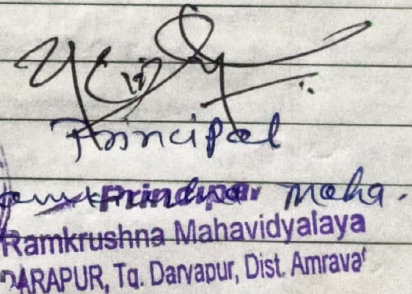 Principal
Principal Maha.
Ramkrushna Mahavidyalaya
DARAPUR, Tq. Daryapur, Dist. Amravat